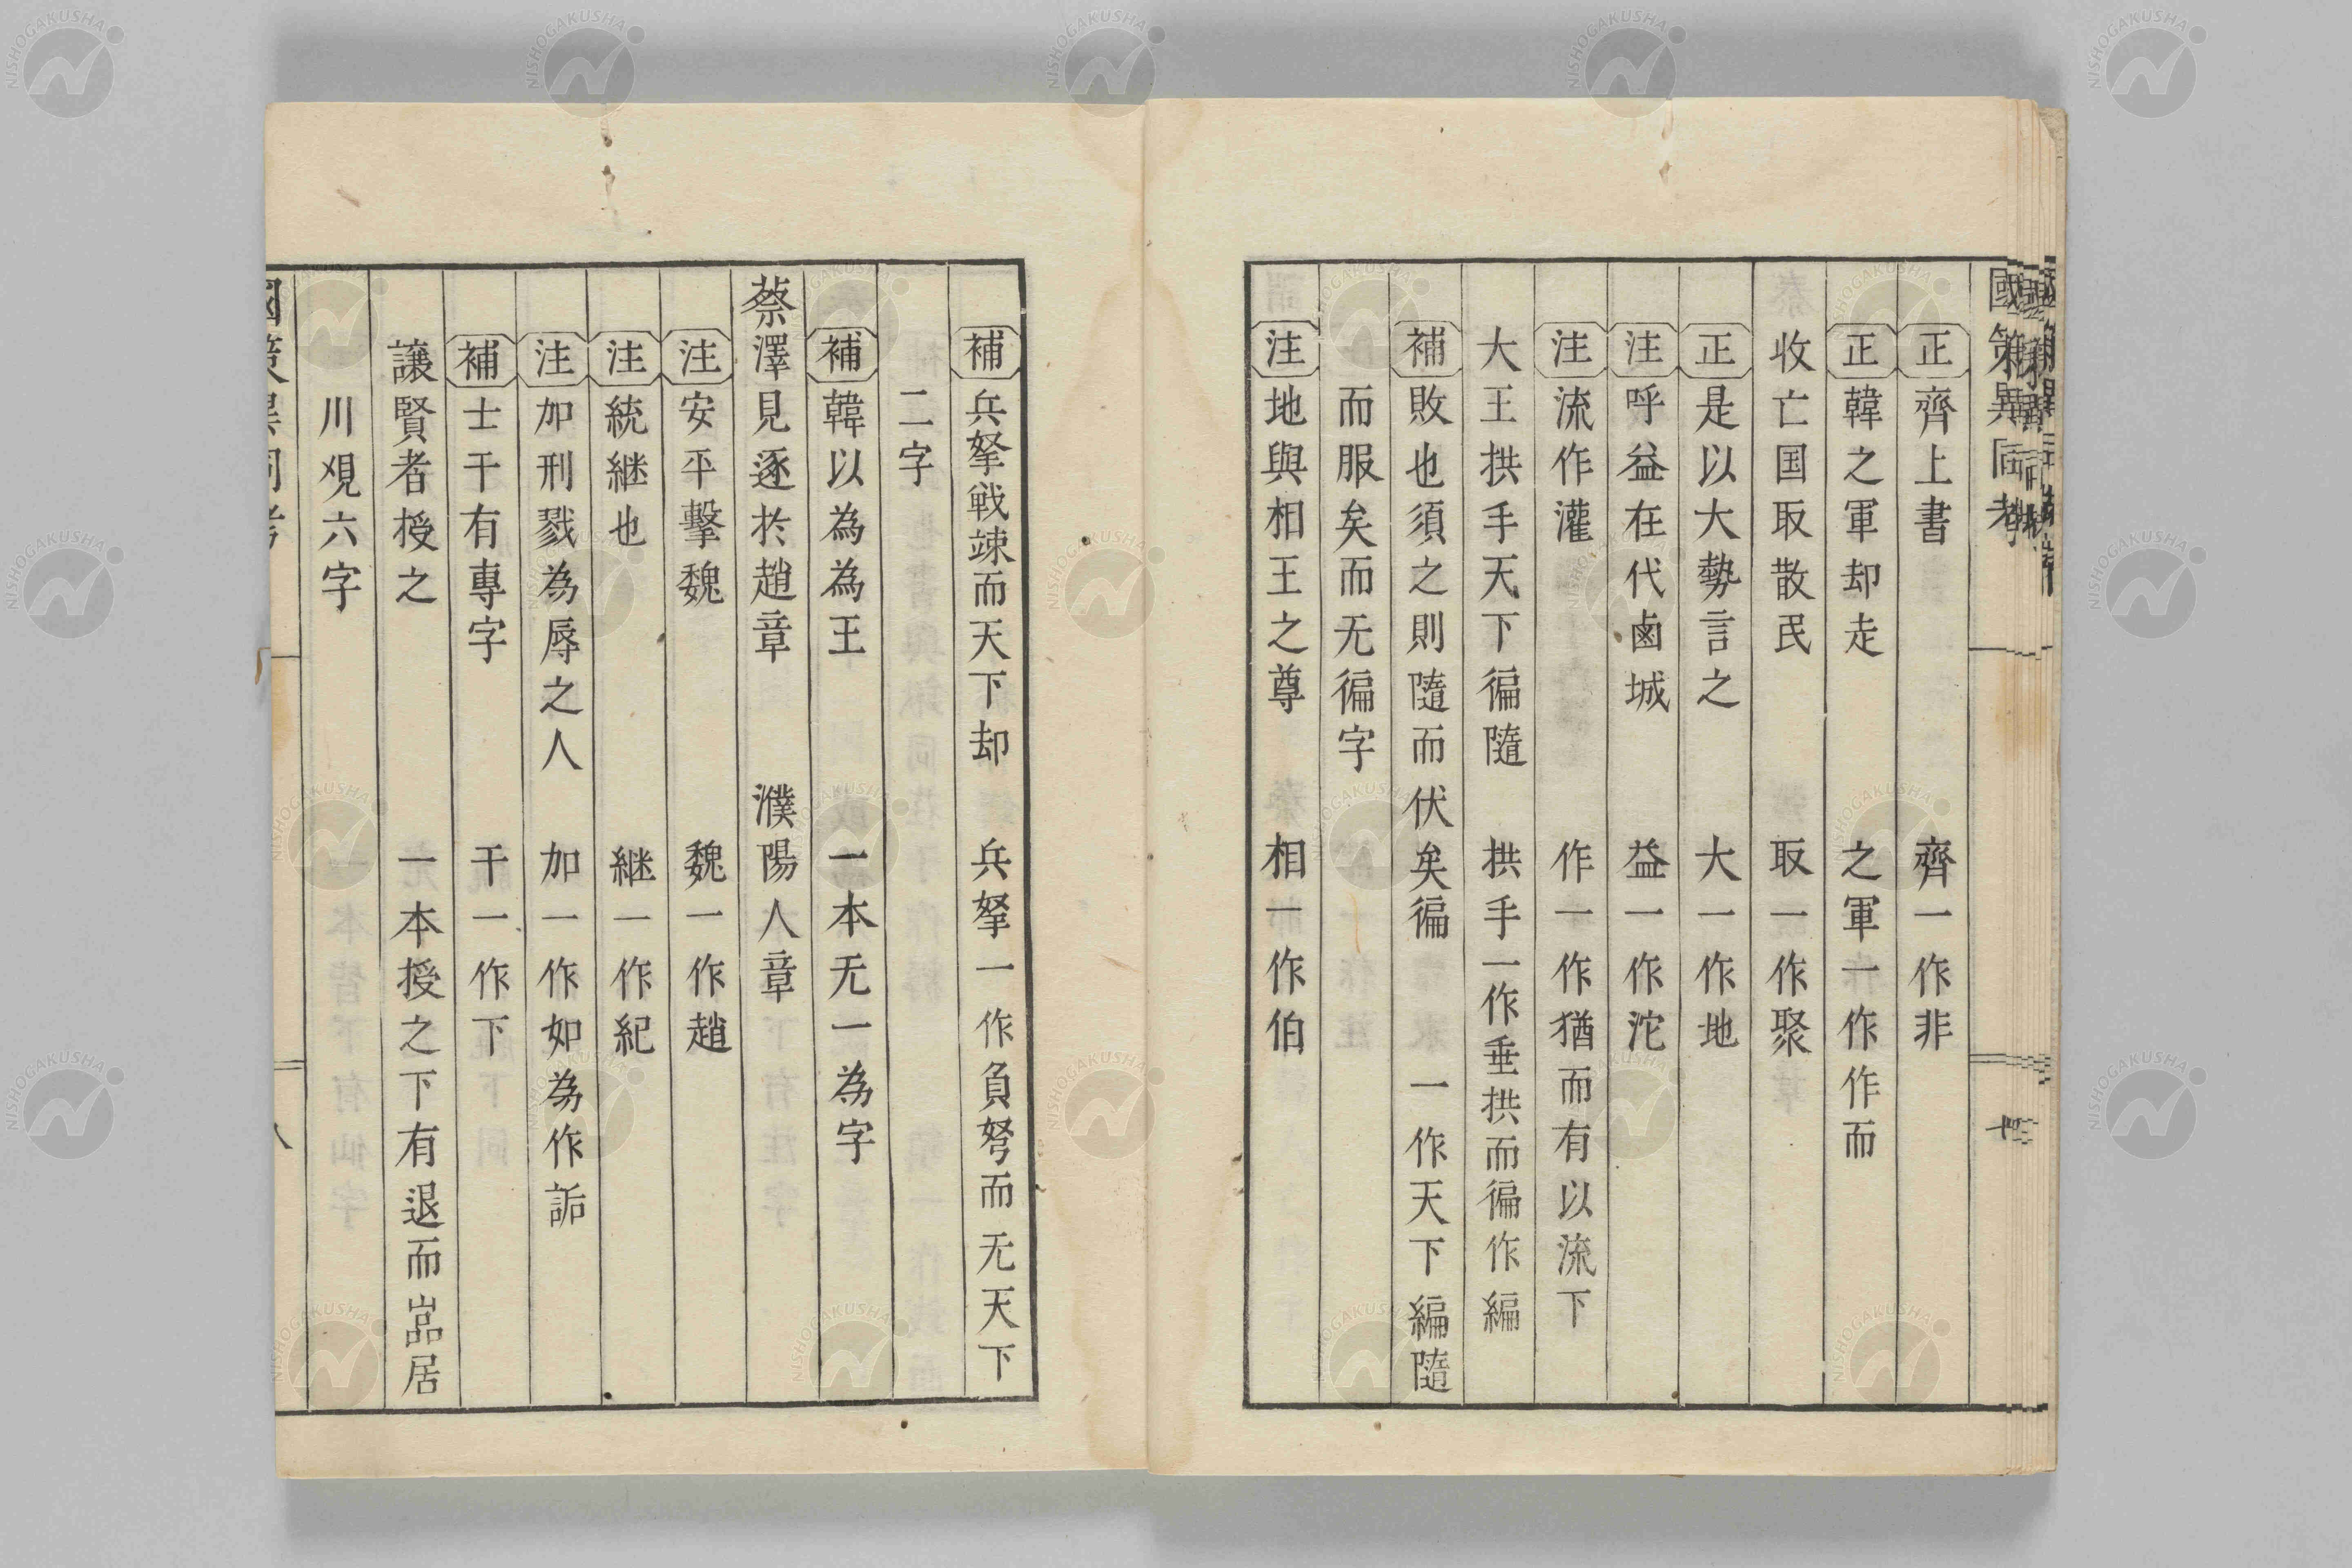 國策異同考
正 齊上書 齊一作非
正 韓之軍却走 之軍一作作而
收亡国取散民 取一作聚
正 是以大勢言之 大一作地
注 呼益在代鹵城 益一作沱
注 流作灌 作一作猶而有以流下
大王拱手天下徧隨 拱手一作垂拱而徧作編
補 敗也須之則隨而伏矣徧 一作天下編隨
而服矣而无徧字
注 地與相王之尊 相一作伯
補 兵拏戦竦而天下却 兵拏一作負弩而无天下
二字
補 韓以為為王 一本无一為字
蔡澤見逐於趙章 濮陽人章
注 安平擊魏 魏一作趙
注 統継也 継一作紀
注 加刑戮為辱之人 加一作如為作詬
補 士干有專字 干一作下
讓賢者授之 一本授之下有退而嵓居
川覌六字
國策異同考 八
NISHOGAKUSHA